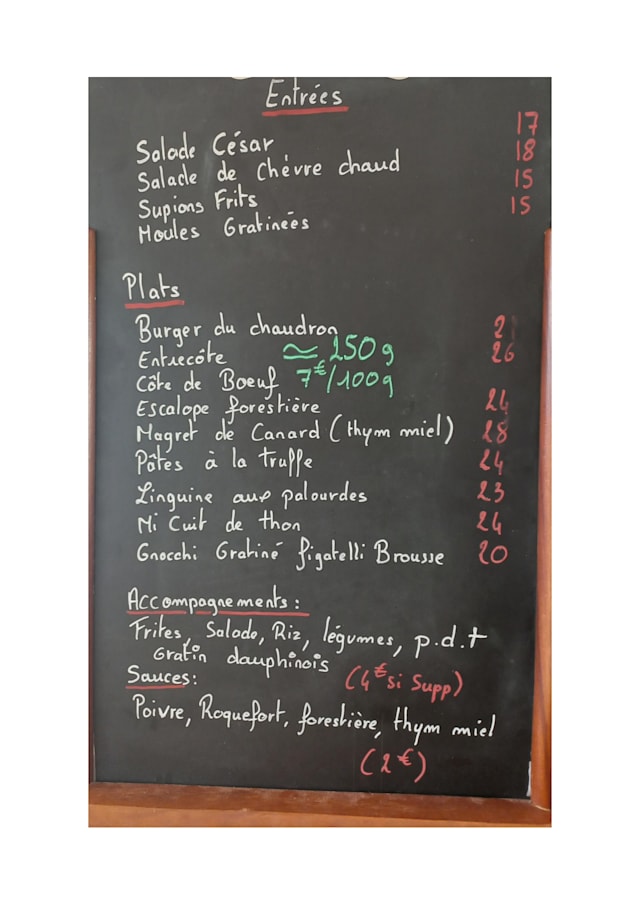 Entrées
Salade César 17
Salade de Chèvre chaud 18
Supions Frits 15
Moules Gratinées 15
Plats
Burger du chaudron
Entrecôte ≈ 250g 26
Côte de Boeuf 7€/100g
Escalope forestière 24
Magret de Canard (thym miel) 28
Pâtes à la truffe 24
Linguine aux palourdes 23
Mi Cuit de thon 24
Gnocchi Gratiné figatelli Brousse 20
Accompagnements :
Frites, Salade, Riz, légumes, p.d.t
Gratin dauphinois
(4€ si Supp)
Sauces :
Poivre, Roquefort, forestière, thym miel
(2€)